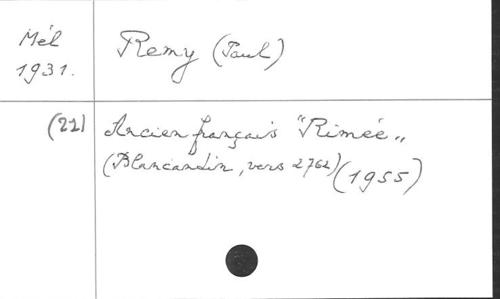 Mél
1931.
Remy (Paul)
(21) Ancien français "Rimée„
(Blancandin, vers 2762) (1955)